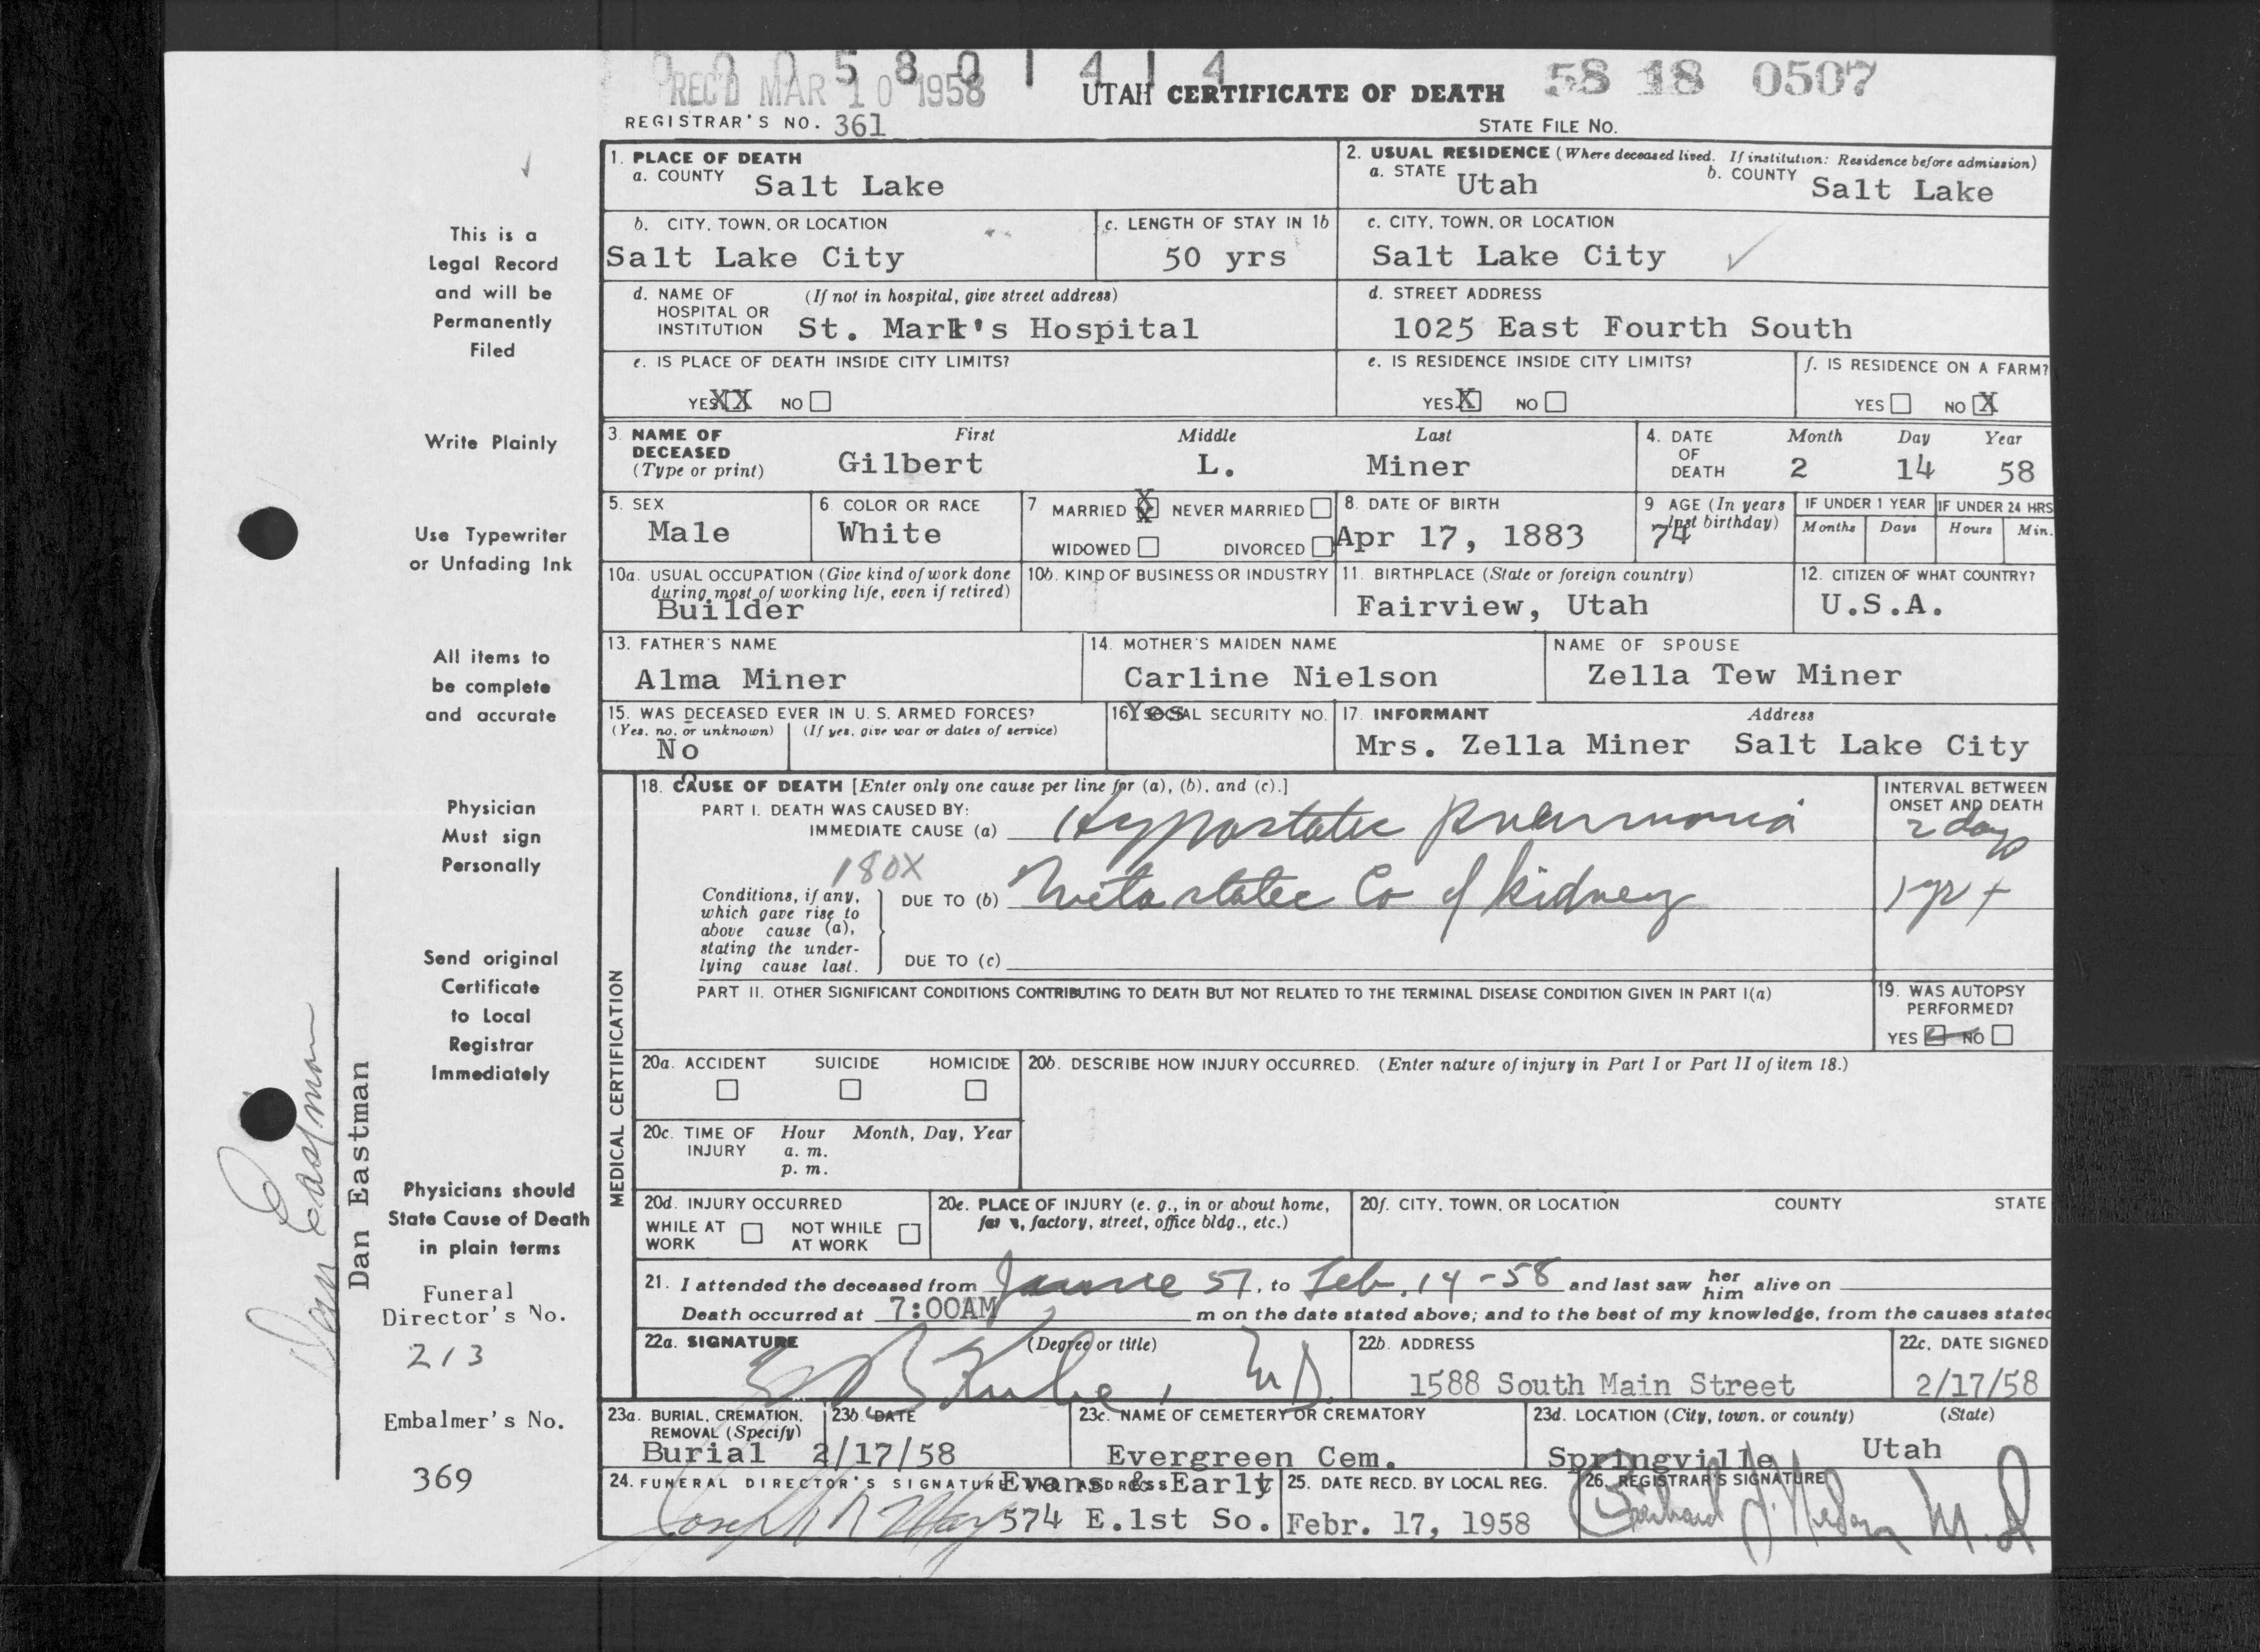 0 0 0 5 8 0 1 4 1 4
REC'D MAR 10 1958
UTAH CERTIFICATE OF DEATH
58 18 0507
REGISTRAR'S NO. 361
STATE FILE NO.
1. PLACE OF DEATH
a. COUNTY Salt Lake
2. USUAL RESIDENCE (Where deceased lived. If institution: Residence before admission)
a. STATE Utah b. COUNTY Salt Lake
b. CITY, TOWN, OR LOCATION
Salt Lake City
c. LENGTH OF STAY IN 1b
50 yrs
c. CITY, TOWN, OR LOCATION
Salt Lake City
d. NAME OF HOSPITAL OR INSTITUTION (If not in hospital, give street address)
St. Mark's Hospital
d. STREET ADDRESS
1025 East Fourth South
e. IS PLACE OF DEATH INSIDE CITY LIMITS?
YES XX NO
e. IS RESIDENCE INSIDE CITY LIMITS?
YES X NO
f. IS RESIDENCE ON A FARM?
YES NO X
3. NAME OF DECEASED (Type or print)
First Middle Last
Gilbert L. Miner
4. DATE OF DEATH
Month Day Year
2 14 58
5. SEX
Male
6. COLOR OR RACE
White
7. MARRIED X NEVER MARRIED
WIDOWED DIVORCED
8. DATE OF BIRTH
Apr 17, 1883
9 AGE (In years last birthday)
74
IF UNDER 1 YEAR IF UNDER 24 HRS
Months Days Hours Min.
10a. USUAL OCCUPATION (Give kind of work done during most of working life, even if retired)
Builder
10b. KIND OF BUSINESS OR INDUSTRY
11. BIRTHPLACE (State or foreign country)
Fairview, Utah
12. CITIZEN OF WHAT COUNTRY?
U.S.A.
13. FATHER'S NAME
Alma Miner
14. MOTHER'S MAIDEN NAME
Carline Nielson
NAME OF SPOUSE
Zella Tew Miner
15. WAS DECEASED EVER IN U. S. ARMED FORCES?
(Yes, no, or unknown) (If yes, give war or dates of service)
No
16. SOCIAL SECURITY NO.
Yes
17. INFORMANT Address
Mrs. Zella Miner Salt Lake City
MEDICAL CERTIFICATION
18. CAUSE OF DEATH [Enter only one cause per line for (a), (b), and (c).]
INTERVAL BETWEEN ONSET AND DEATH
PART I. DEATH WAS CAUSED BY:
IMMEDIATE CAUSE (a) Hypostatic pneumonia 2 days
180X
Conditions, if any, which gave rise to above cause (a), stating the underlying cause last.
DUE TO (b) Metastatic Ca of kidney 1 yr +
DUE TO (c)
PART II. OTHER SIGNIFICANT CONDITIONS CONTRIBUTING TO DEATH BUT NOT RELATED TO THE TERMINAL DISEASE CONDITION GIVEN IN PART I(a)
19. WAS AUTOPSY PERFORMED?
YES NO
20a. ACCIDENT SUICIDE HOMICIDE
20b. DESCRIBE HOW INJURY OCCURRED. (Enter nature of injury in Part I or Part II of item 18.)
20c. TIME OF INJURY
Hour Month, Day, Year
a. m.
p. m.
20d. INJURY OCCURRED
WHILE AT WORK NOT WHILE AT WORK
20e. PLACE OF INJURY (e. g., in or about home, farm, factory, street, office bldg., etc.)
20f. CITY, TOWN, OR LOCATION COUNTY STATE
21. I attended the deceased from 57, to Feb. 14-58 and last saw her him alive on
Death occurred at 7:00AM m on the date stated above; and to the best of my knowledge, from the causes stated
22a. SIGNATURE (Degree or title)
M D.
22b. ADDRESS
1588 South Main Street
22c. DATE SIGNED
2/17/58
23a. BURIAL, CREMATION, REMOVAL (Specify)
Burial
23b. DATE
2/17/58
23c. NAME OF CEMETERY OR CREMATORY
Evergreen Cem.
23d. LOCATION (City, town, or county) (State)
Springville Utah
24. FUNERAL DIRECTOR'S SIGNATURE AND ADDRESS
Evans & Early
574 E.1st So.
25. DATE RECD. BY LOCAL REG.
Febr. 17, 1958
26. REGISTRAR'S SIGNATURE
M.D
This is a
Legal Record
and will be
Permanently
Filed
Write Plainly
Use Typewriter
or Unfading Ink
All items to
be complete
and accurate
Physician
Must sign
Personally
Send original
Certificate
to Local
Registrar
Immediately
Physicians should
State Cause of Death
in plain terms
Funeral
Director's No.
213
Embalmer's No.
369
Dan Eastman
Dan Eastman